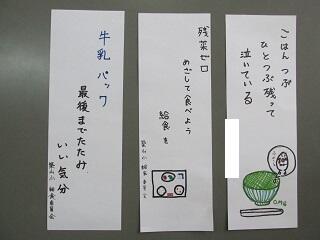 ごはんつぶ
ひとつぶ残って
泣いている
OMG
残菜ゼロ
めざして食べよう
給食を
葉山小 給食委員会
牛乳パック
最後までたたみ
いい気分
葉山小 給食委員会